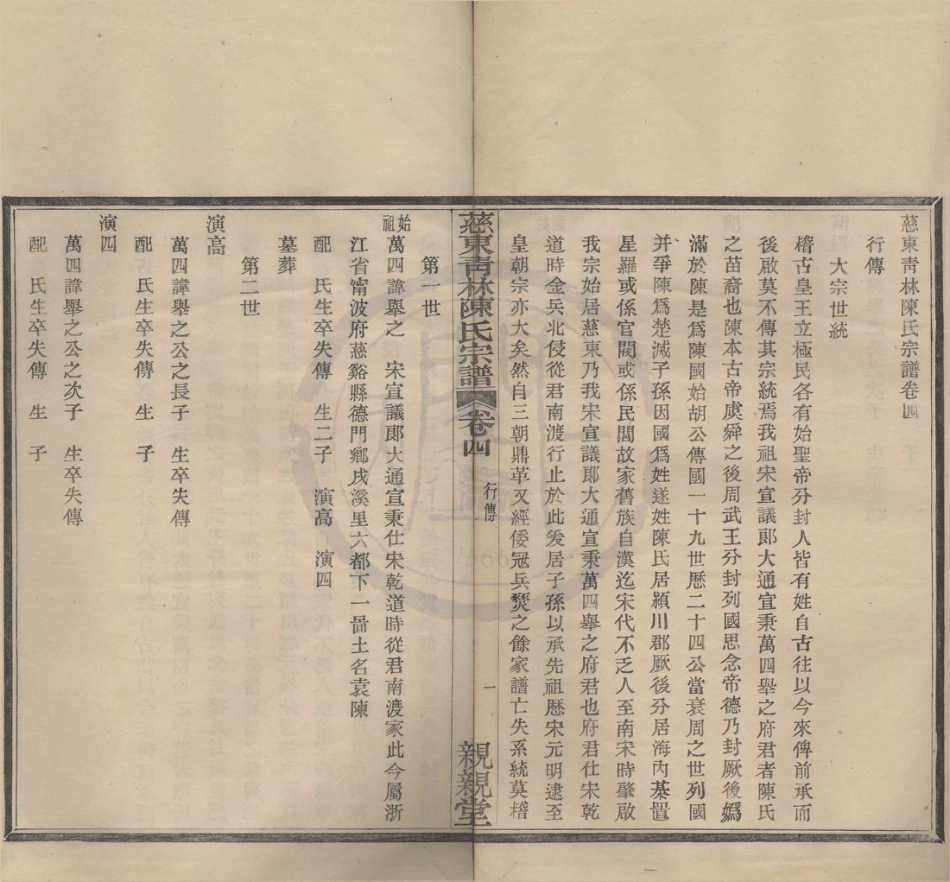 慈東靑林陳氏宗譜卷四
行傳
大宗世統
稽古皇王立極民各有始聖帝分封人皆有姓自古往以今來俾前承而
後啟莫不傳其宗統焉我祖宋宣議郎大通宣秉萬四舉之府君者陳氏
之苗裔也陳本古帝虞舜之後周武王分封列國思念帝德乃封厥後嬀
滿於陳是爲陳國始胡公傳國一十九世歷二十四公當衰周之世列國
并爭陳爲楚滅子孫因國爲姓遂姓陳氏居潁川郡厥後分居海內棊置
星羅或係官閥或係民閭故家舊族自漢迄宋代不乏人至南宋時肇啟
我宗始居慈東乃我宋宣議郎大通宣秉萬四舉之府君也府君仕宋乾
道時金兵北侵從君南渡行止於此爰居子孫以承先祖歷宋元明逮至
皇朝宗亦大矣然自三朝鼎革又經倭冦兵燹之餘家譜亡失系統莫稽
慈東靑林陳氏宗譜 卷四 行傳 一 親親堂
第一世
始祖萬四諱舉之 宋宣議郎大通宣秉仕宋乾道時從君南渡家此今屬浙
江省甯波府慈谿縣德門鄉戌溪里六都下一啚土名袁陳
配 氏生卒失傳 生二子 演高 演四
墓葬
第二世
演高
萬四諱舉之公之長子 生卒失傳
配 氏生卒失傳 生 子
演四
萬四諱舉之公之次子 生卒失傳
配 氏生卒失傳 生 子